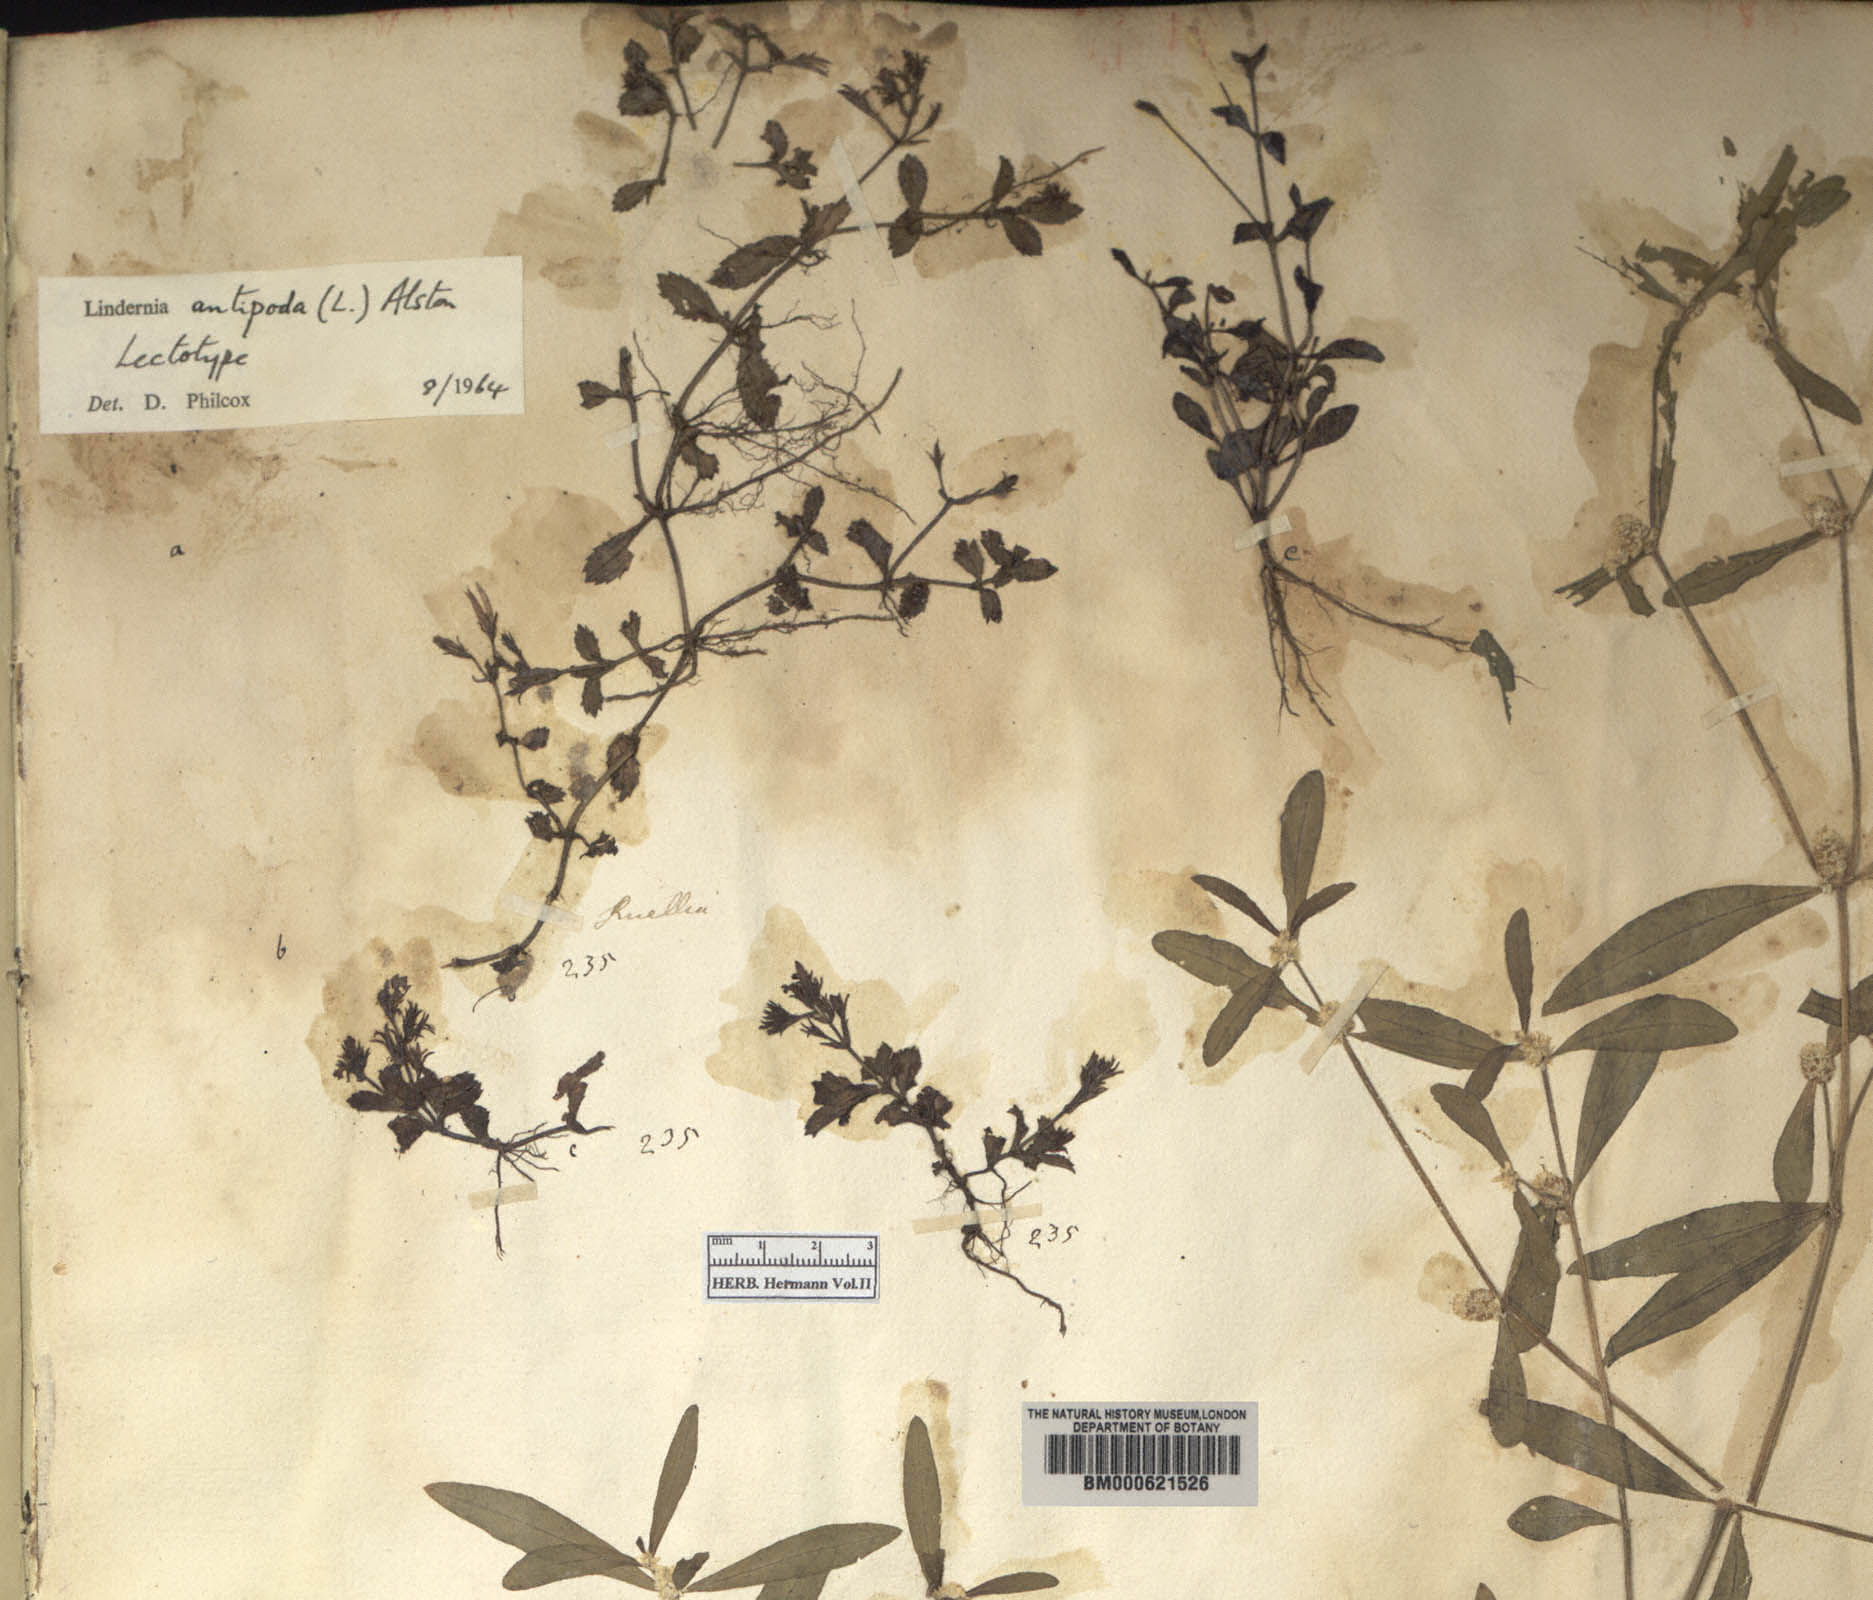 Lindernia antipoda (L.) Alston
Lectotype
Det. D. Philcox 8/1964
a
e
Ruellia
b
235
235
c
235
mm 1 2 3
HERB. Hermann Vol.II
THE NATURAL HISTORY MUSEUM,LONDON
DEPARTMENT OF BOTANY
BM000621526